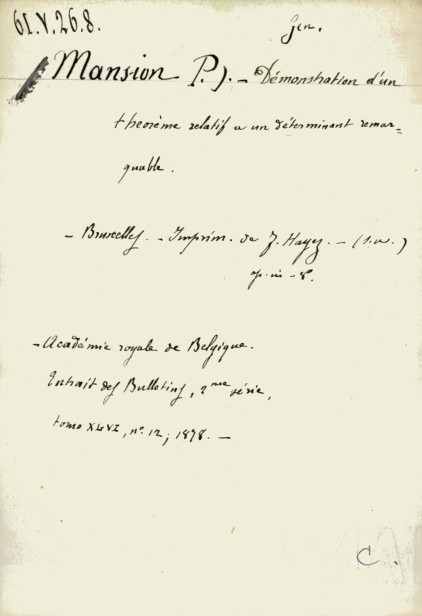 61.V.26.8.
Gen.
Mansion P.). — Démonstration d'un
théorème relatif a un déterminant remar=
quable.
— Bruxelles. — Imprim. de F. Hayez. — (s.a.)
op. in - 8º.
— Académie royale de Belgique.
Extrait des Bulletins, 2me série,
tome XLVI, nº. 12; 1878. —
C.